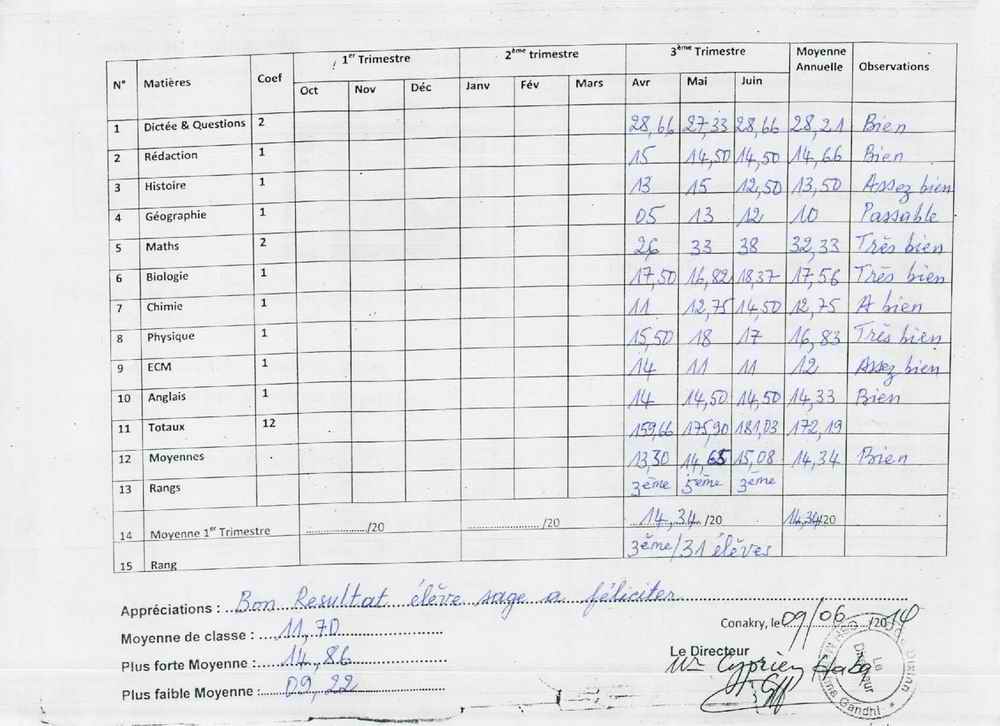 N° Matières Coef 1er Trimestre 2ème trimestre 3ème Trimestre Moyenne Annuelle Observations
Oct Nov Déc Janv Fév Mars Avr Mai Juin
1 Dictée & Questions 2 28,66 27,33 28,66 28,21 Bien
2 Rédaction 1 15 14,50 14,50 14,66 Bien
3 Histoire 1 13 15 12,50 13,50 Assez bien
4 Géographie 1 05 13 12 10 Passable
5 Maths 2 26 33 38 32,33 Très bien
6 Biologie 1 17,50 16,82 18,37 17,56 Très bien
7 Chimie 1 11 12,75 14,50 12,75 A bien
8 Physique 1 15,50 18 17 16,83 Très bien
9 ECM 1 14 11 11 12 Assez bien
10 Anglais 1 14 14,50 14,50 14,33 Bien
11 Totaux 12 159,66 175,90 181,03 172,19
12 Moyennes 13,30 14,65 15,08 14,34 Bien
13 Rangs 3ème 5ème 3ème
14 Moyenne 1er Trimestre ..................../20 ..................../20 14,34/20 14,34/20
15 Rang 3ème/31 élèves
Appréciations : Bon Resultat élève sage a féliciter
Moyenne de classe : 11,70
Plus forte Moyenne : 14,86
Plus faible Moyenne : 09,22
Conakry, le 09/06/2014
Le Directeur
Mr Cyprien Haba
Le Directeur
Gandhi